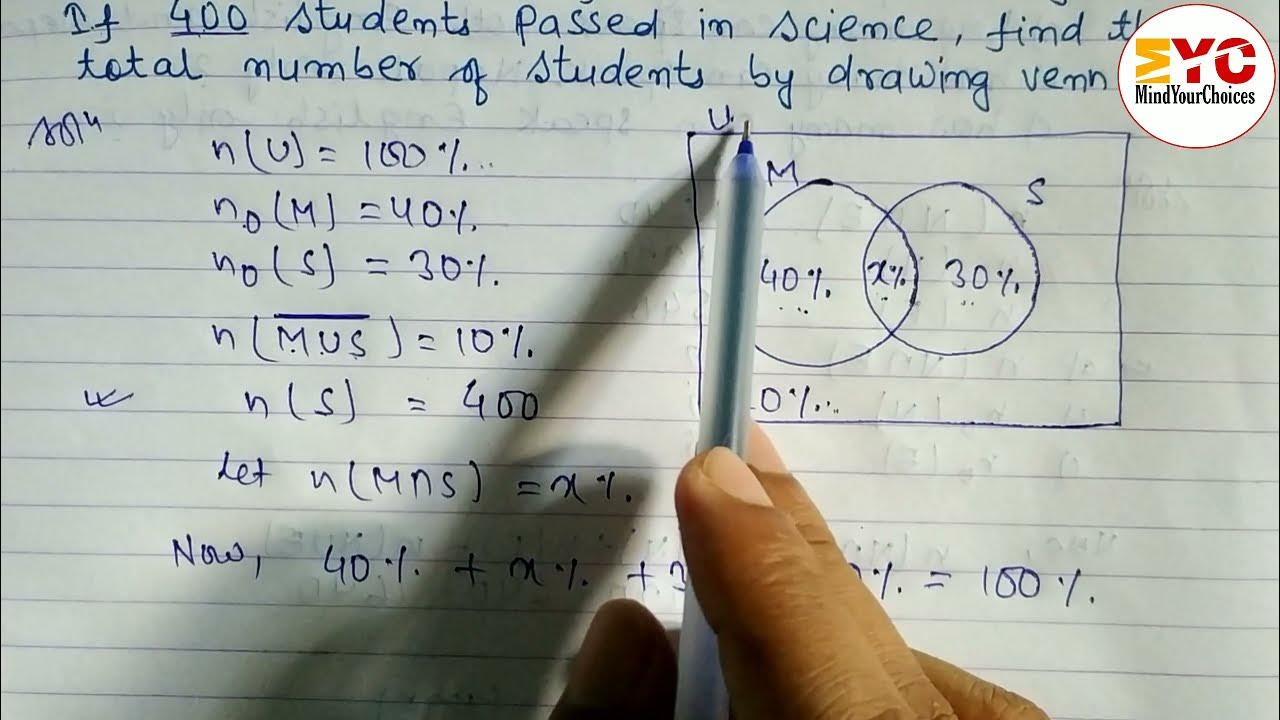 If 400 students passed in science, find th
total number of students by drawing venn
MYC
MindYourChoices
Solⁿ
n(U) = 100%.
n₀(M) = 40%.
n₀(S) = 30%.
n(\overline{M∪S}) = 10%.
n(S) = 400
Let n(M∩S) = x%.
Now, 40% + x% + 3 % = 100%.
U
M
S
40%. x% 30%.
0%.